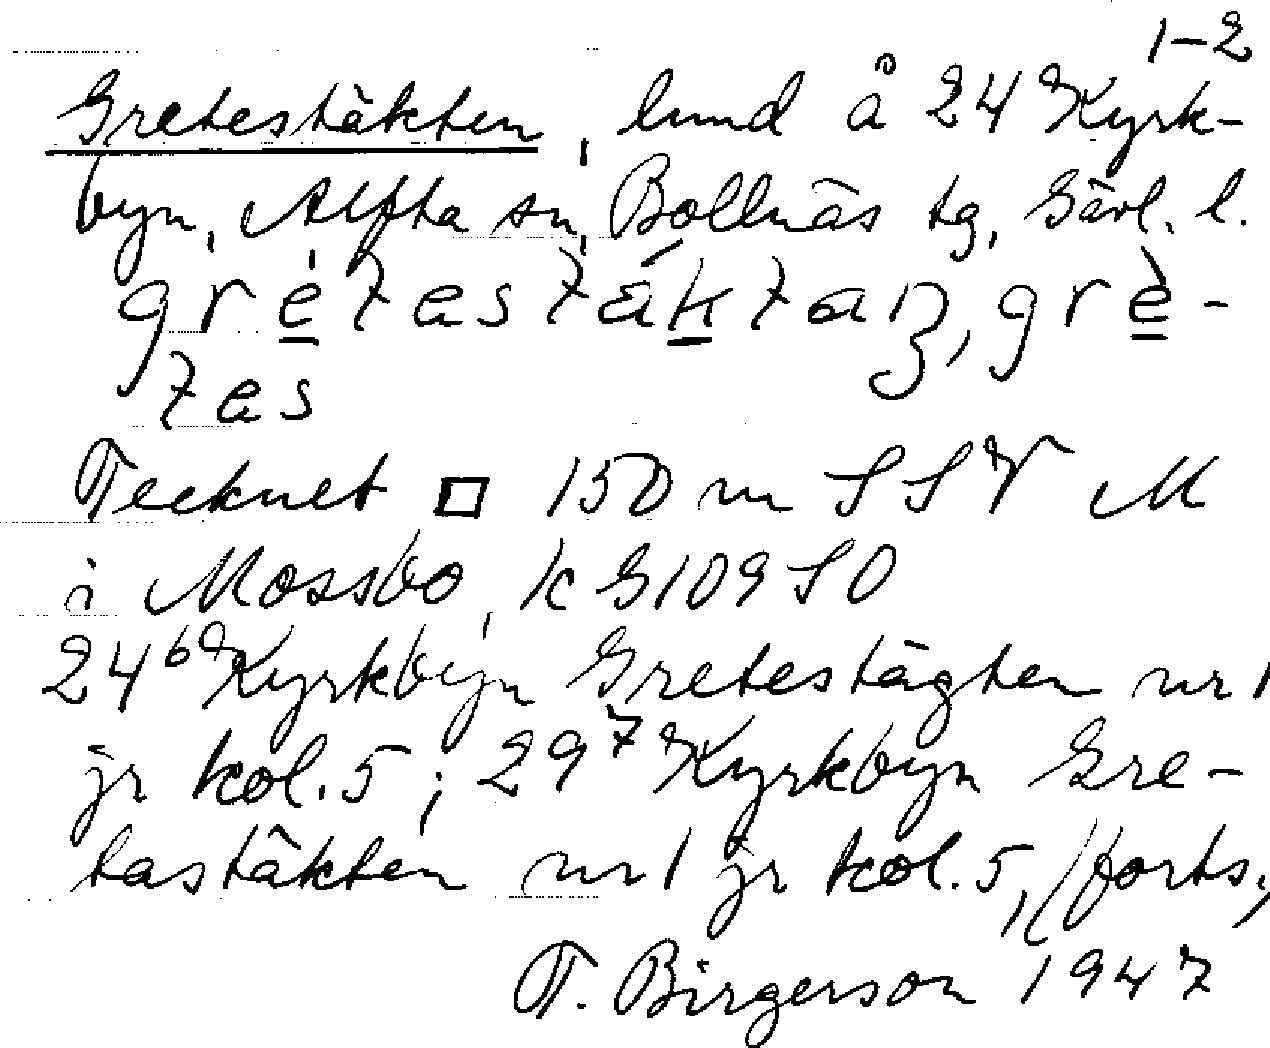 1-2
Gretestäkten, lund å 24 Kyrk-
byn, Alfta sn, Bollnäs tg, Gävl. l.
grètestáktan, grè-
tes
Tecknet □ 150 m SSV M
i Mossbo, k G109 SO
24⁶ Kyrkbyn Gretestägten nr 1
jr kol. 5; 29⁷ Kyrkbyn Gre-
tastäkten nr 1 jr kol. 5, (forts.,
T. Birgerson 1947